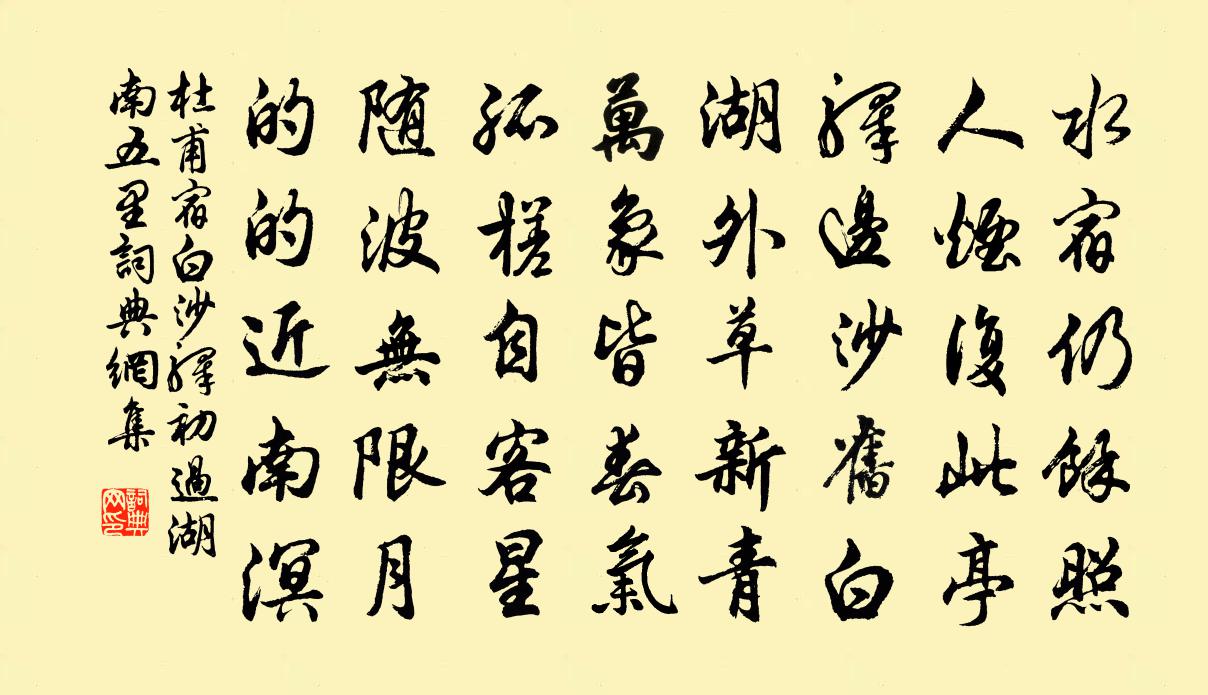 水宿仍餘照
人煙復此亭
驛邊沙舊白
湖外草新青
萬象皆春氣
孤槎自客星
随波無限月
的的近南溟
杜甫宿白沙驛初過湖
南五里詞典網集
詞典
网印